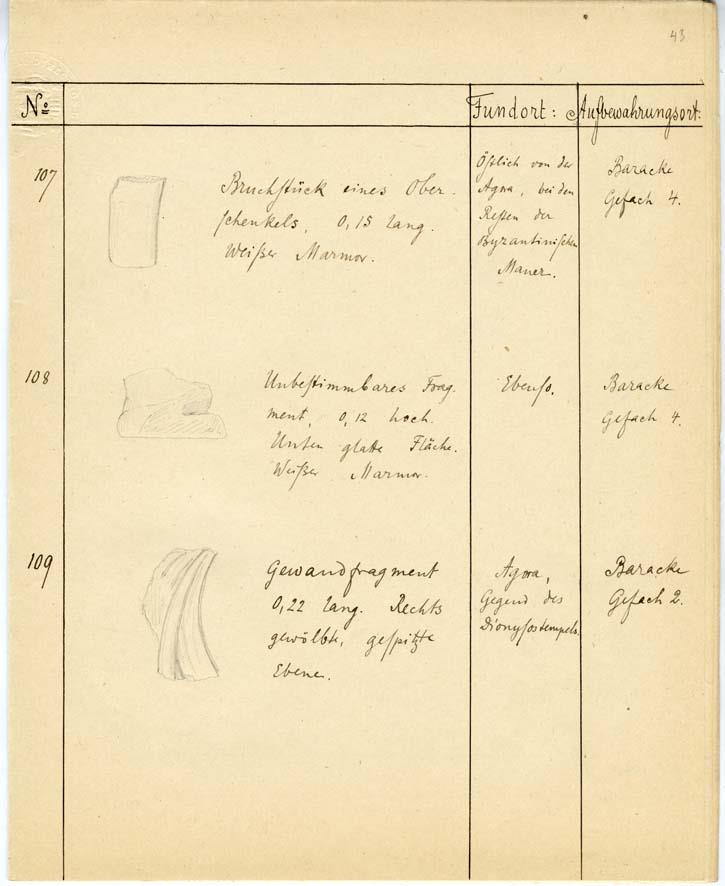 43
No Fundort: Aufbewahrungsort:
107
Bruchstück eines Ober-
schenkels, 0,15 lang.
Weißer Marmor.
Östlich von der
Agora, bei den
Resten der
Byzantinischen
Mauer.
Baracke
Gefach 4.
108
Unbestimmbares Frag-
ment, 0,12 hoch.
Unten glatte Fläche.
Weißer Marmor.
Ebenso.
Baracke
Gefach 4.
109
Gewandfragment
0,22 lang. Rechts
gewölbte, gespitzte
Ebene.
Agora,
Gegend des
Dionysostempels.
Baracke
Gefach 2.